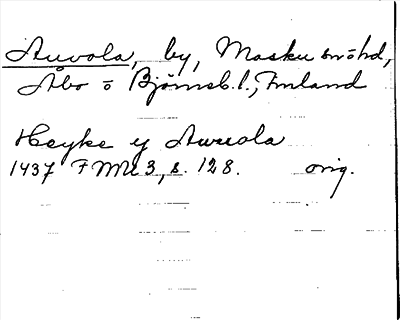 Auvola, by, Masku sn o hd,
Åbo o Björneb. l., Finland
Heyke y Auuola
1437 FMU 3, s. 128. orig.